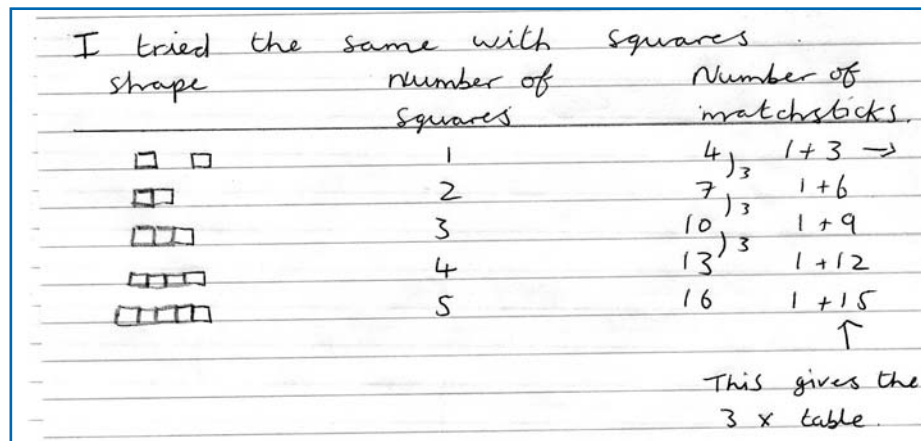 I tried the same with squares.
shape number of squares Number of matchsticks.
1 4 1 + 3 →
)3
2 7 1 + 6
)3
3 10 1 + 9
)3
4 13 1 + 12
5 16 1 + 15
↑
This gives the
3 x table.